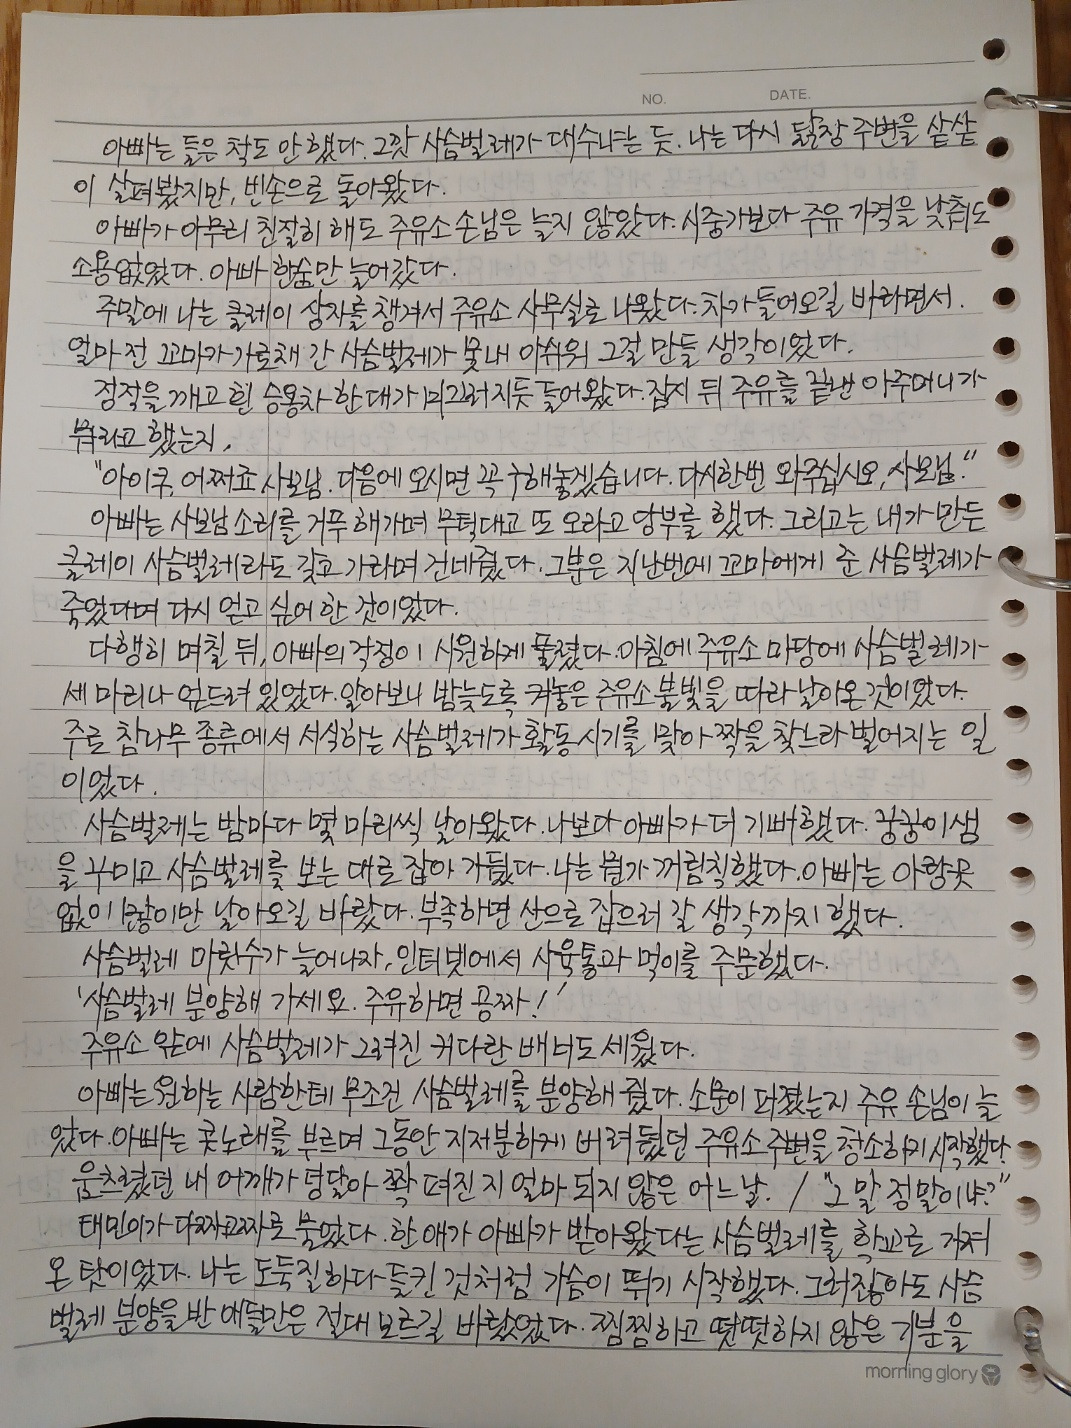 NO. DATE.
아빠는 들은 척도 안 했다. 그깟 사슴벌레가 대수냐는 듯. 나는 다시 닭장 주변을 샅샅
이 살펴봤지만, 빈손으로 돌아왔다.
아빠가 아무리 친절히 해도 주유소 손님은 늘지 않았다. 시중가보다 주유 가격을 낮춰도
소용없었다. 아빠 한숨만 늘어갔다.
주말에 나는 클레이 상자를 챙겨서 주유소 사무실로 나왔다. 차가 들어오길 바라면서.
얼마 전 꼬마가 가로채 간 사슴벌레가 못내 아쉬워 그걸 만들 생각이었다.
정적을 깨고 흰 승용차 한 대가 미끄러지듯 들어왔다. 잠시 뒤 주유를 끝낸 아주머니가
뭐라고 했는지,
"아이쿠, 어쩌죠 사모님. 다음에 오시면 꼭 구해놓겠습니다. 다시한번 와주십시오, 사모님."
아빠는 사모님 소리를 거푸 해가며 무턱대고 또 오라고 당부를 했다. 그리고는 내가 만든
클레이 사슴벌레라도 갖고 가라며 건네줬다. 그분은 지난번에 꼬마에게 준 사슴벌레가
죽었다며 다시 얻고 싶어 한 것이었다.
다행히 며칠 뒤, 아빠의 걱정이 시원하게 풀렸다. 아침에 주유소 마당에 사슴벌레가
세 마리나 엎드려 있었다. 알아보니 밤늦도록 켜놓은 주유소 불빛을 따라 날아온 것이었다.
주로 참나무 종류에서 서식하는 사슴벌레가 활동 시기를 맞아 짝을 찾느라 벌어지는 일
이었다.
사슴벌레는 밤마다 몇 마리씩 날아왔다. 나보다 아빠가 더 기뻐했다. 꿍꿍이셈
을 꾸미고 사슴벌레를 보는 대로 잡아 가뒀다. 나는 뭔가 꺼림칙했다. 아빠는 아랑곳
없이 많이만 날아오길 바랐다. 부족하면 산으로 잡으러 갈 생각까지 했다.
사슴벌레 마릿수가 늘어나자, 인터넷에서 사육통과 먹이를 주문했다.
'사슴벌레 분양해 가세요. 주유하면 공짜!'
주유소 앞에 사슴벌레가 그려진 커다란 배너도 세웠다.
아빠는 원하는 사람한테 무조건 사슴벌레를 분양해 줬다. 소문이 퍼졌는지 주유 손님이 늘
었다. 아빠는 콧노래를 부르며 그동안 지저분하게 버려뒀던 주유소 주변을 청소하기 시작했다.
움츠렸던 내 어깨가 덩달아 쫙 펴진 지 얼마 되지 않은 어느 날. / "그 말 정말이냐?"
태민이가 다짜고짜로 물었다. 한 애가 아빠가 받아왔다는 사슴벌레를 학교로 가져
온 탓이었다. 나는 도둑질하다 들킨 것처럼 가슴이 뛰기 시작했다. 그러잖아도 사슴
벌레 분양을 반 애들만은 절대 모르길 바랐었다. 찜찜하고 떳떳하지 않은 기분을
morning glory